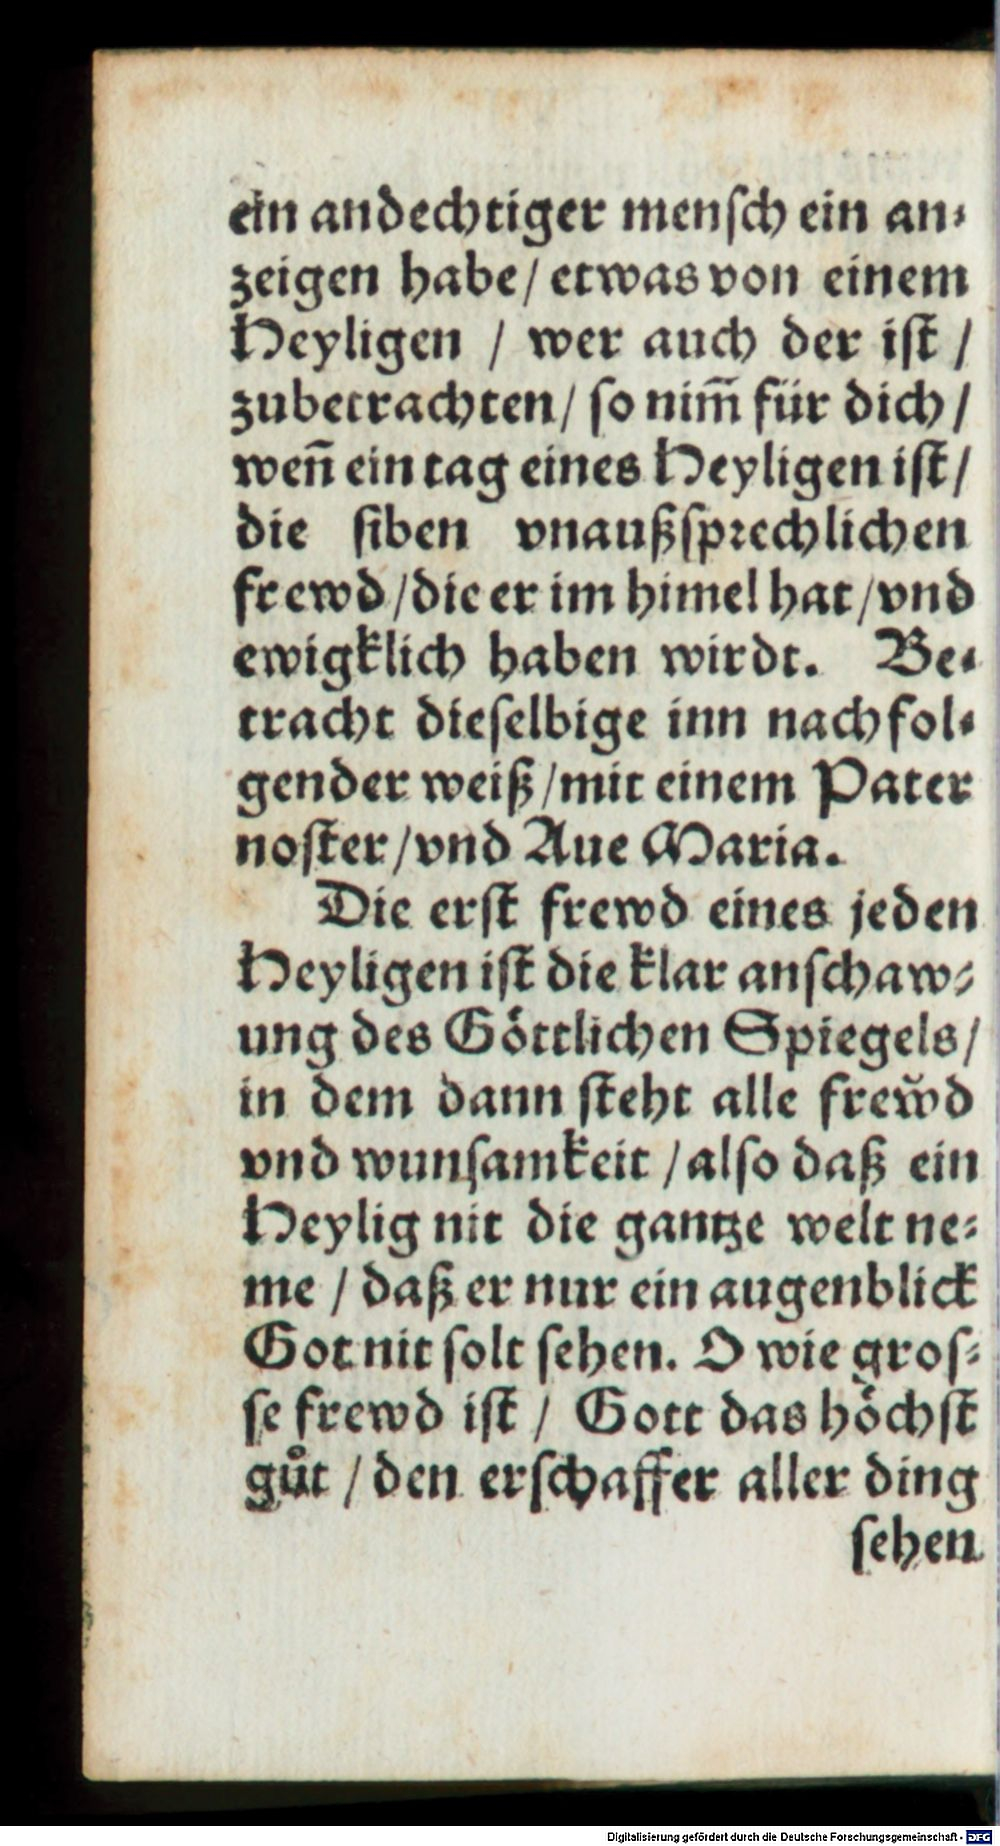 ein andechtiger menſch ein an⸗
zeigen habe / etwas von einem
Heyligen / wer auch der iſt /
zubetrachten / ſo nim̃ für dich /
weñ ein tag eines Heyligen iſt /
die ſiben vnaußſprechlichen
frewd / die er im himel hat / vnd
ewigklich haben wirdt. Be⸗
tracht dieſelbige inn nachfol⸗
gender weiß / mit einem Pater
noſter / vnd Aue Maria.
Die erſt frewd eines jeden
Heyligen iſt die klar anſchaw⸗
ung des Göttlichen Spiegels /
in dem dann ſteht alle frewd
vnd wunſamkeit / alſo daß ein
Heylig nit die gantze welt ne⸗
me / daß er nur ein augenblick
Got nit ſolt ſehen. O wie groſ⸗
ſe frewd iſt / Gott das höchſt
gůt / den erſchaffer aller ding
ſehen
Digitalisierung gefördert durch die Deutsche Forschungsgemeinschaft - DFG